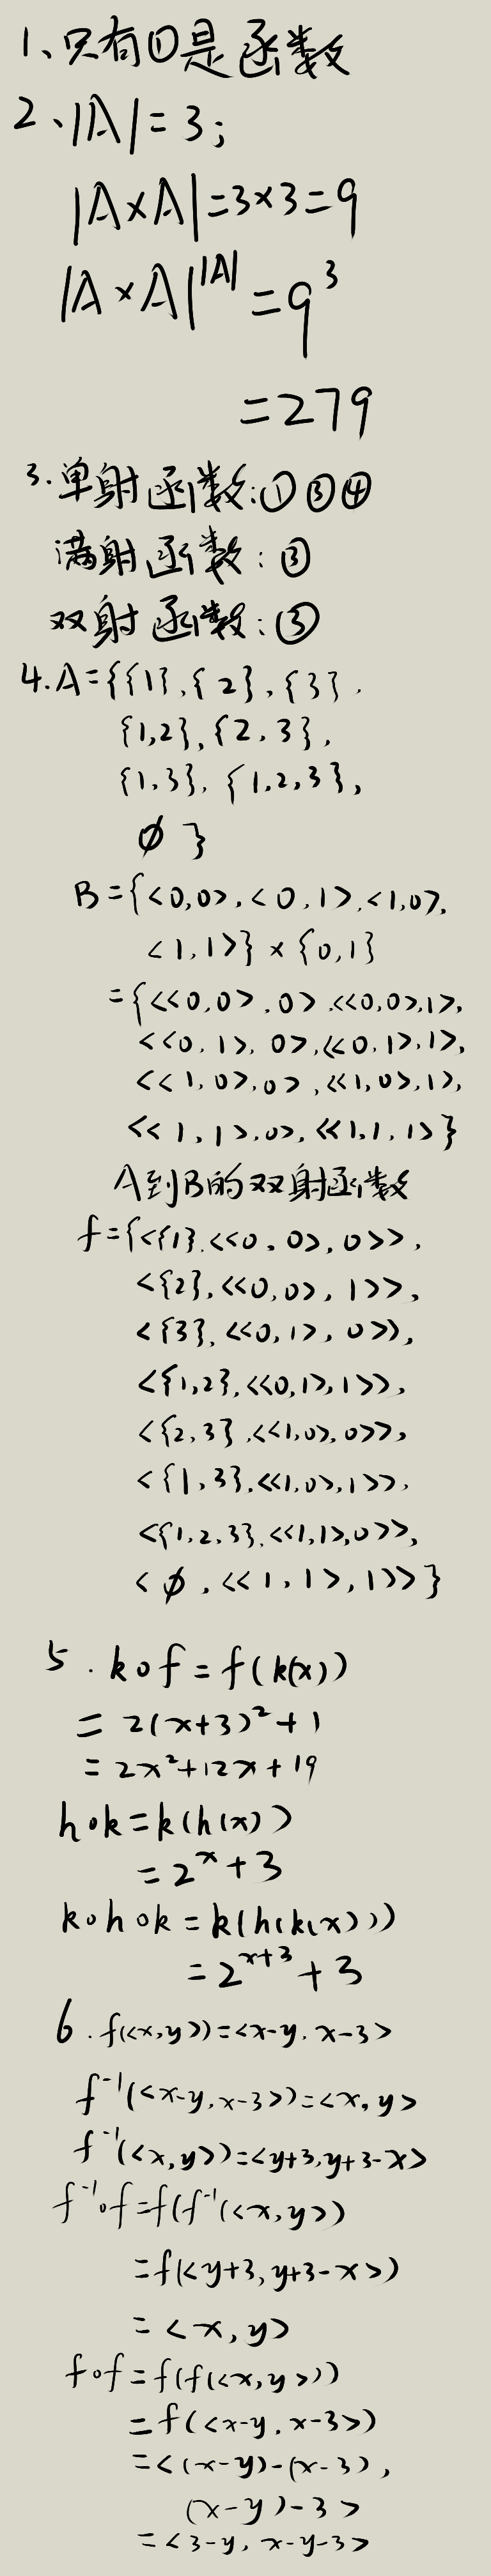 1、只有①是函数
2、|A|=3;
|A×A|=3×3=9
|A×A|^|A|=9^3
=279
3.单射函数:①③④
满射函数:③
双射函数:③
4.A={{1},{2},{3},
{1,2},{2,3},
{1,3},{1,2,3},
∅}
B={<0,0>,<0,1>,<1,0>,
<1,1>}×{0,1}
={<<0,0>,0>,<<0,0>,1>,
<<0,1>,0>,<<0,1>,1>,
<<1,0>,0>,<<1,0>,1>,
<<1,1>,0>,<<1,1,1>}
A到B的双射函数
f={<{1},<<0,0>,0>>,
<{2},<<0,0>,1>>,
<{3},<<0,1>,0>>,
<{1,2},<<0,1>,1>>,
<{2,3},<<1,0>,0>>,
<{1,3},<<1,0>,1>>,
<{1,2,3},<<1,1>,0>>,
<∅,<<1,1>,1>>}
5.k∘f=f(k(x))
=2(x+3)²+1
=2x²+12x+19
h∘k=k(h(x))
=2^x+3
k∘h∘k=k(h(k(x)))
=2^(x+3)+3
6.f(<x,y>)=<x-y,x-3>
f⁻¹(<x-y,x-3>)=<x,y>
f⁻¹(<x,y>)=<y+3,y+3-x>
f⁻¹∘f=f(f⁻¹(<x,y>)
=f(<y+3,y+3-x>)
=<x,y>
f∘f=f(f(<x,y>))
=f(<x-y,x-3>)
=<(x-y)-(x-3),
(x-y)-3>
=<3-y,x-y-3>